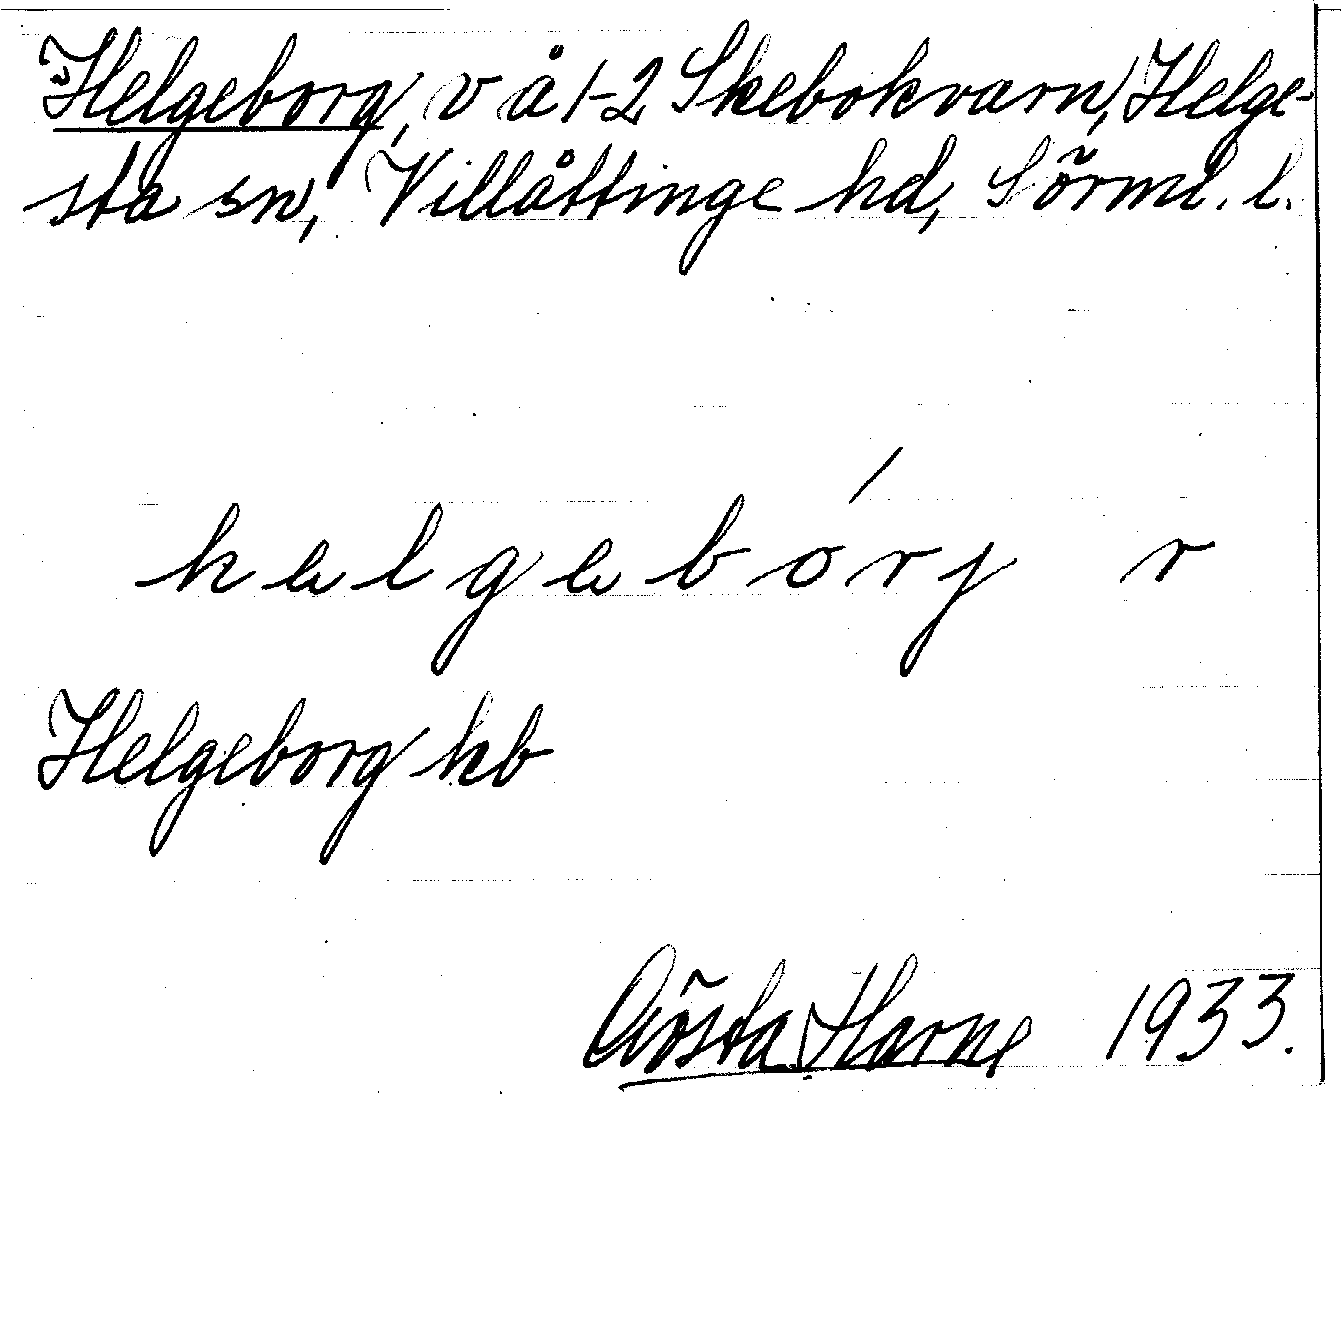 Helgeborg, v å 1-2 Skebokvarn, Helge-
sta sn, Villåttinge hd, Sörml. l.
helgebórj r
Helgeborg kb
Gösta Harne 1933.